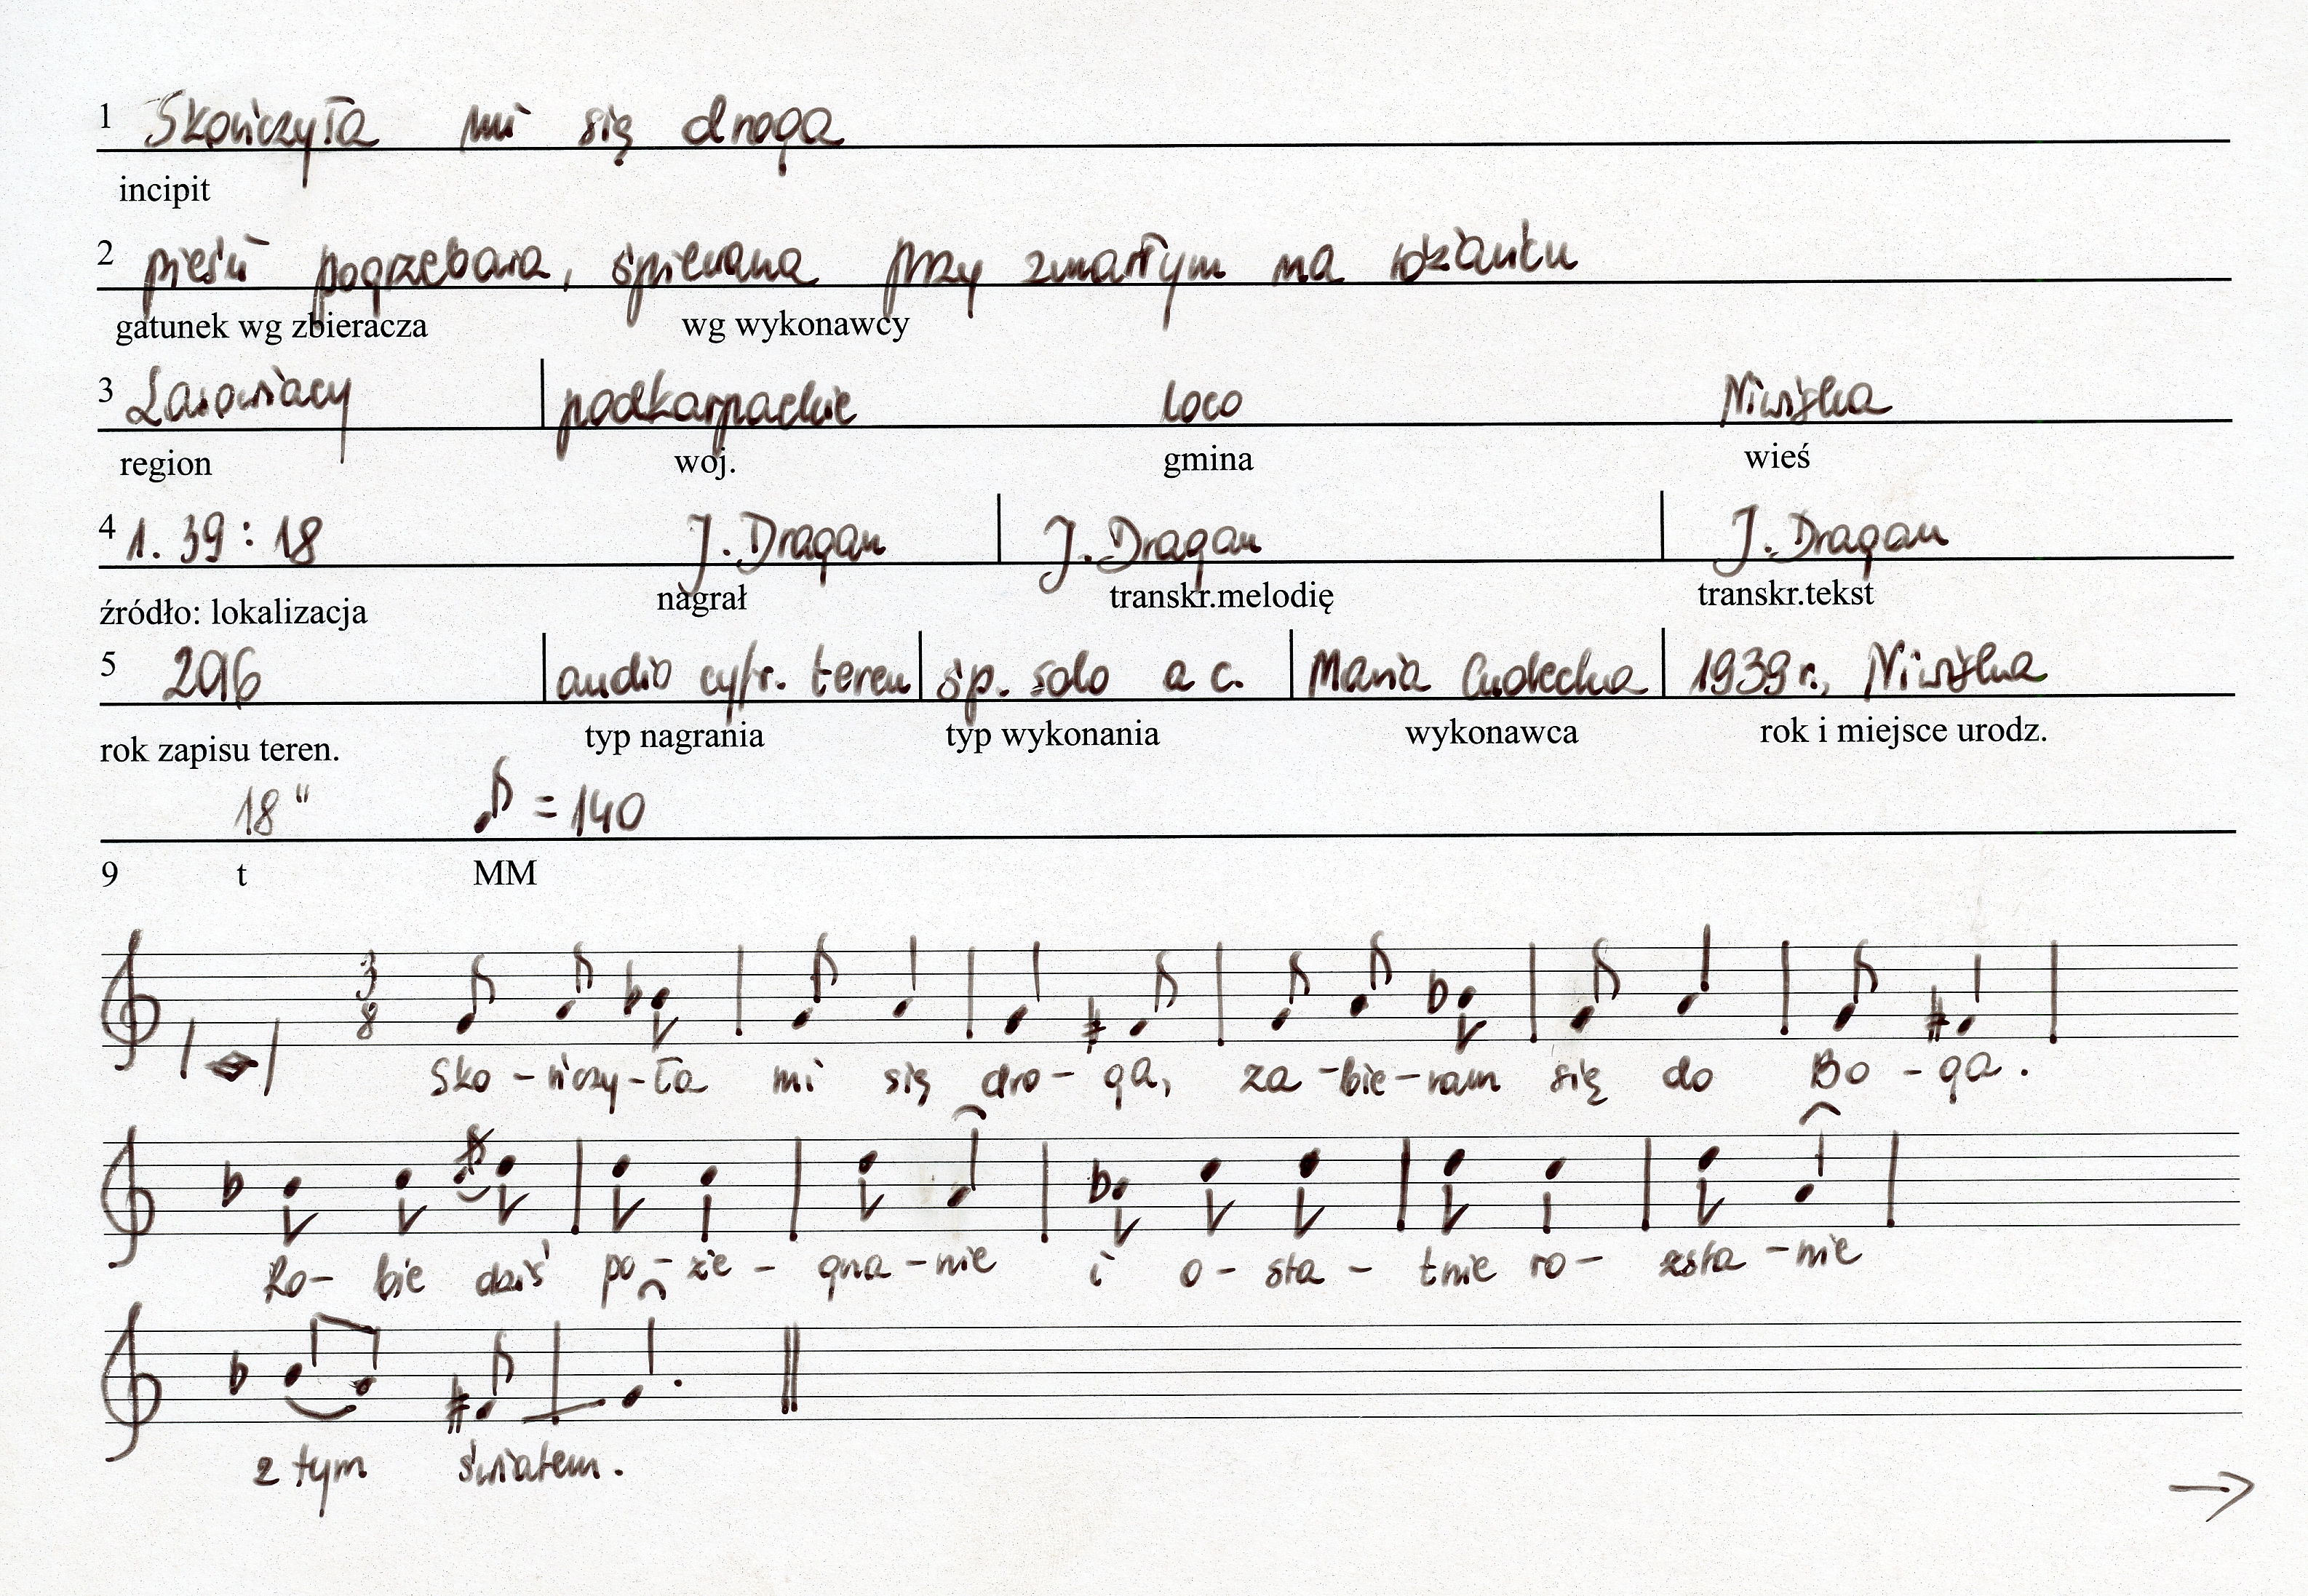 1 Skończyła mi się droga
incipit
2 pieśń pogrzebowa, śpiewana przy zmarłym na różańcu
gatunek wg zbieracza wg wykonawcy
3 Lasowiacy podkarpackie loco Niwiska
region woj. gmina wieś
4 1. 39 : 18 J. Dragan J. Dragan J. Dragan
źródło: lokalizacja nagrał transkr.melodię transkr.tekst
5 2016 audio cyfr. teren śp. solo a c. Maria 1939 r., Niwiska
rok zapisu teren. typ nagrania typ wykonania wykonawca rok i miejsce urodz.
18" ♪ = 140
9 t MM
3
8
Sko - ńczy - ła mi się dro - ga, za - bie - ram się do Bo - ga.
Ro - bie dziś po - że - gna - nie i o - sta - tnie ro - zsta - nie
z tym światem.